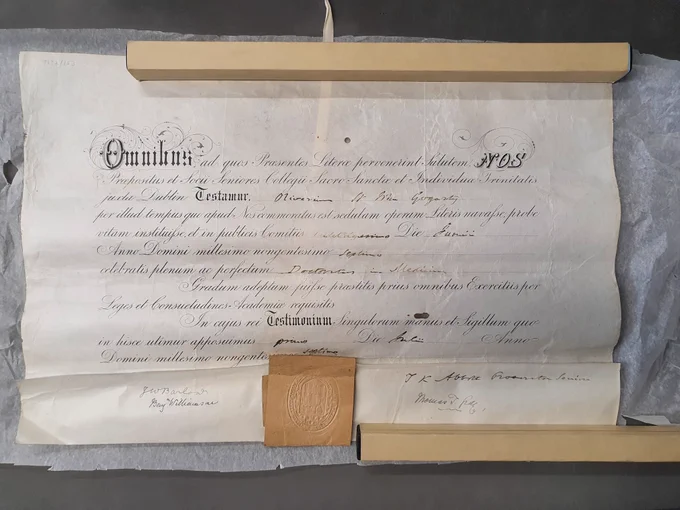 Omnibus ad quos Præsentes Literæ pervenerint Salutem. NOS
Præpositus et Socii Seniores Collegii Sacro Sanctæ et Individuæ Trinitatis
juxta Dublin Testamur, St Gogarty
per illud tempus quo apud Nos commoratus est sedulam operam Literis navasse, probe
vitam instituisse, et in publicis Comitiis Die Junii
Anno Domini millesimo nongentesimo septimo
celebratis plenum ac perfectum Doctoratus in Medicina
Gradum adeptum fuisse præstitis prius omnibus Exercitiis per
Leges et Consuetudines Academiæ requisitis
In cujus rei Testimonium Singulorum manus et Sigillum quo
in hisce utimur apposuimus primo Die Julii Anno
Domini millesimo nongentesimo septimo
J W Barlow
Benj Williamson
T K Abbott
Thomas T.